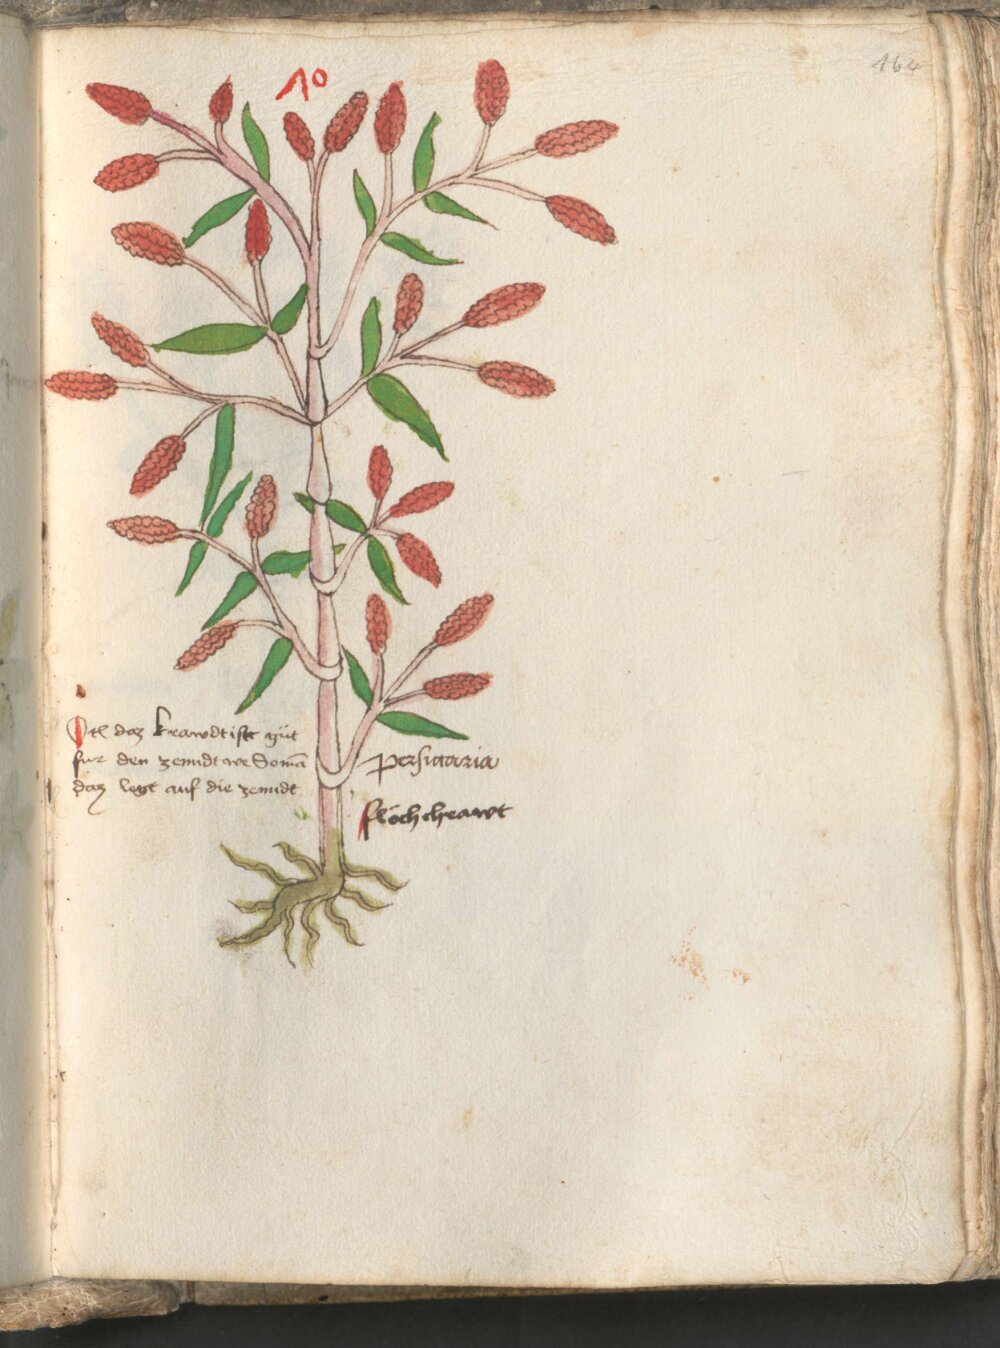 10
164
Itē daz krawdt ist güt
für den zenndt we So mā
daz legt auf die zenndt
persicaria
flöch chrawt